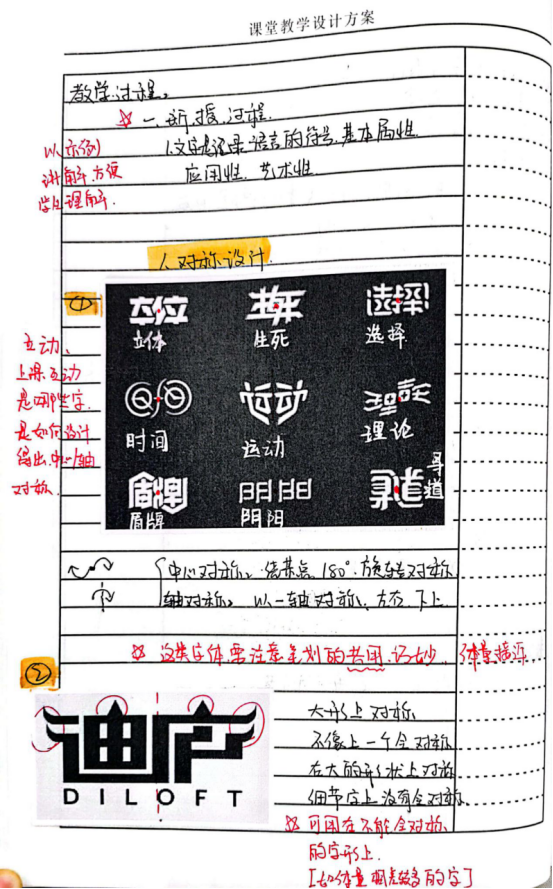 课堂教学设计方案
教学过程。
☆ 一、新授过程
以示例
讲解,方便
学生理解.
1.文字是记录语言的符号.基本属性
应用性.艺术性
1.对称设计.
①
立体 生死 选择
立体 生死 选择
时间 运动 理论
时间 运动 理论
盾牌 阴阳 寻道
盾牌 阴阳 寻道
互动、
上课互动
是哪些字.
是如何设计
得出.中心/轴
对称.
中心对称。绕某点180°旋转对称
轴对称。以一轴对称.左右.下上
☆ 这类字体要注意笔划的共用.巧妙.体量接近
②
迪庐
DILOFT
大形上对称
不像上一个全对称
在大的形状上对称
细节字上没有全对称.
☆ 可用在不能全对称
的字形上.
[如体量相差较多的字]